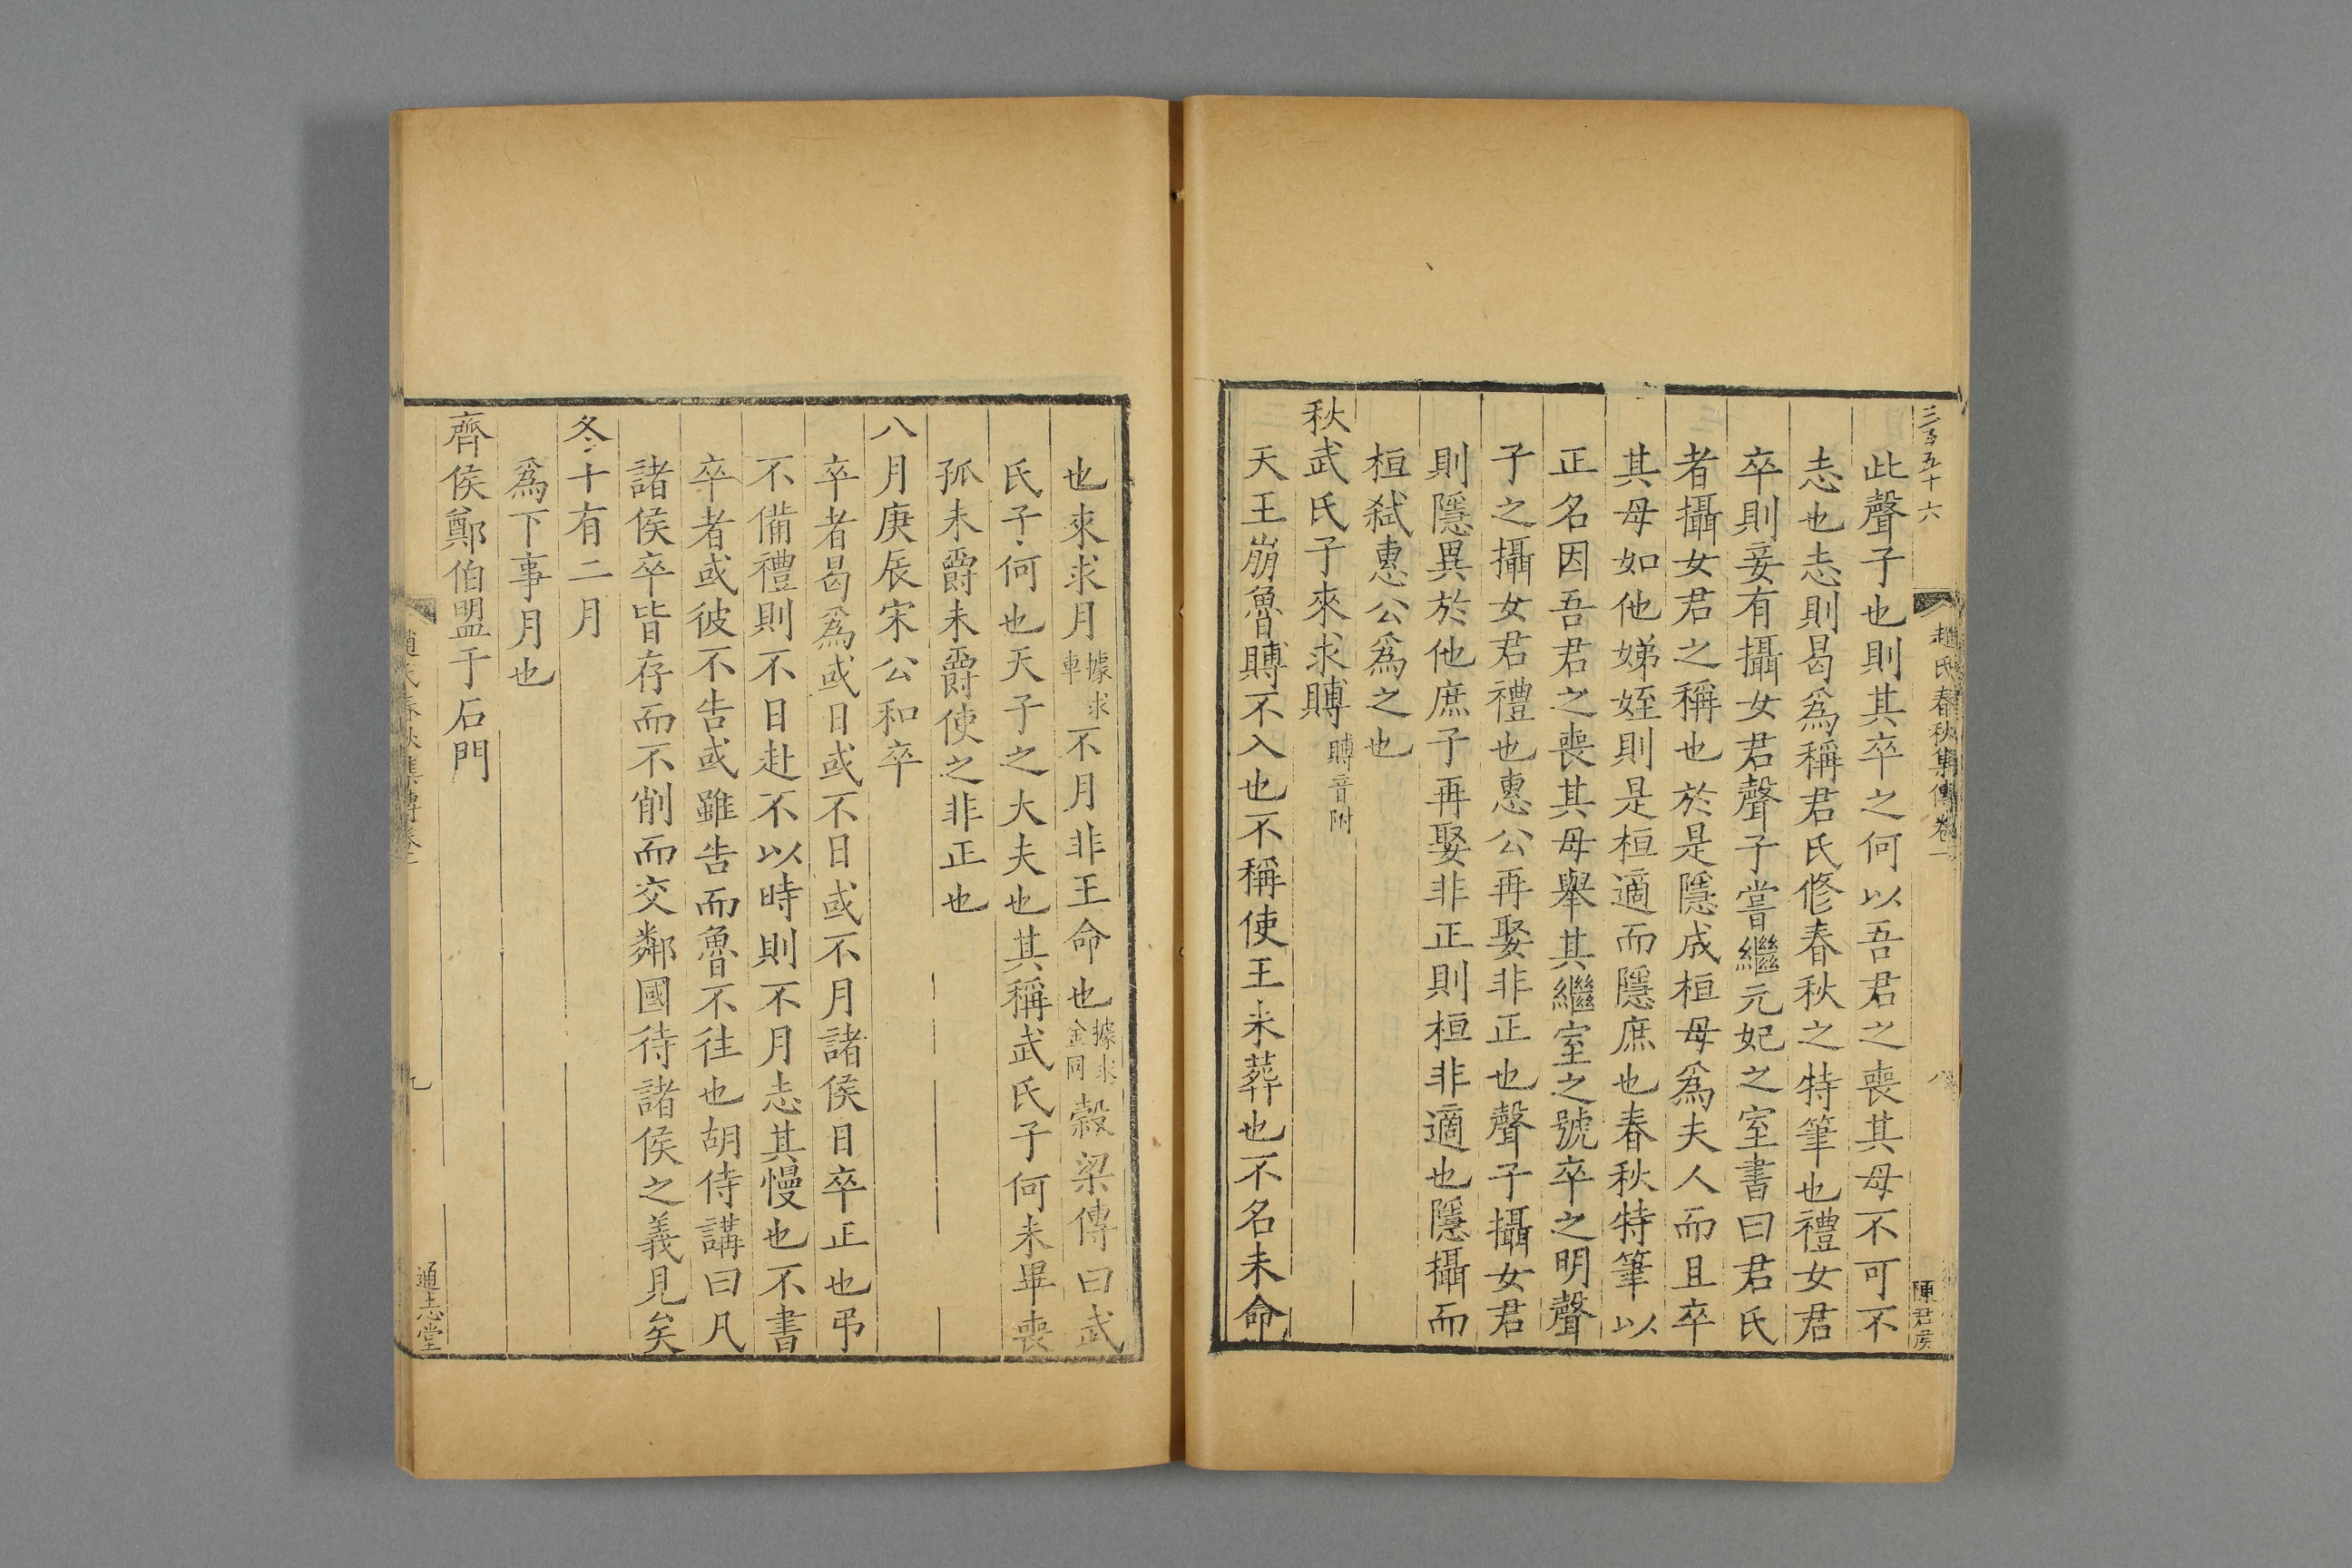 三百五十六
趙氏春秋集傳卷一
八
陳君侯
此聲子也則其卒之何以吾君之喪其母不可不
志也志則曷爲稱君氏修春秋之特筆也禮女君
卒則妾有攝女君聲子嘗繼元妃之室書曰君氏
者攝女君之稱也於是隱成桓母爲夫人而且卒
其母如他娣姪則是桓適而隱庶也春秋特筆以
正名因吾君之喪其母舉其繼室之號卒之明聲
子之攝女君禮也惠公再娶非正也聲子攝女君
則隱異於他庶子再娶非正則桓非適也隱攝而
桓弑惠公爲之也
秋武氏子來求賻賻音附
天王崩魯賻不入也不稱使王未葬也不名未命
也來求月據求車不月非王命也據求金同穀梁傳曰武
氏子何也天子之大夫也其稱武氏子何未畢喪
孤未爵未爵使之非正也
八月庚辰宋公和卒
卒者曷爲或日或不日或不月諸侯日卒正也弔
不備禮則不日赴不以時則不月志其慢也不書
卒者或彼不告或雖告而魯不往也胡侍講曰凡
諸侯卒皆存而不削而交鄰國待諸侯之義見矣
冬十有二月
爲下事月也
齊侯鄭伯盟于石門
趙氏春秋集傳卷一
九
通志堂